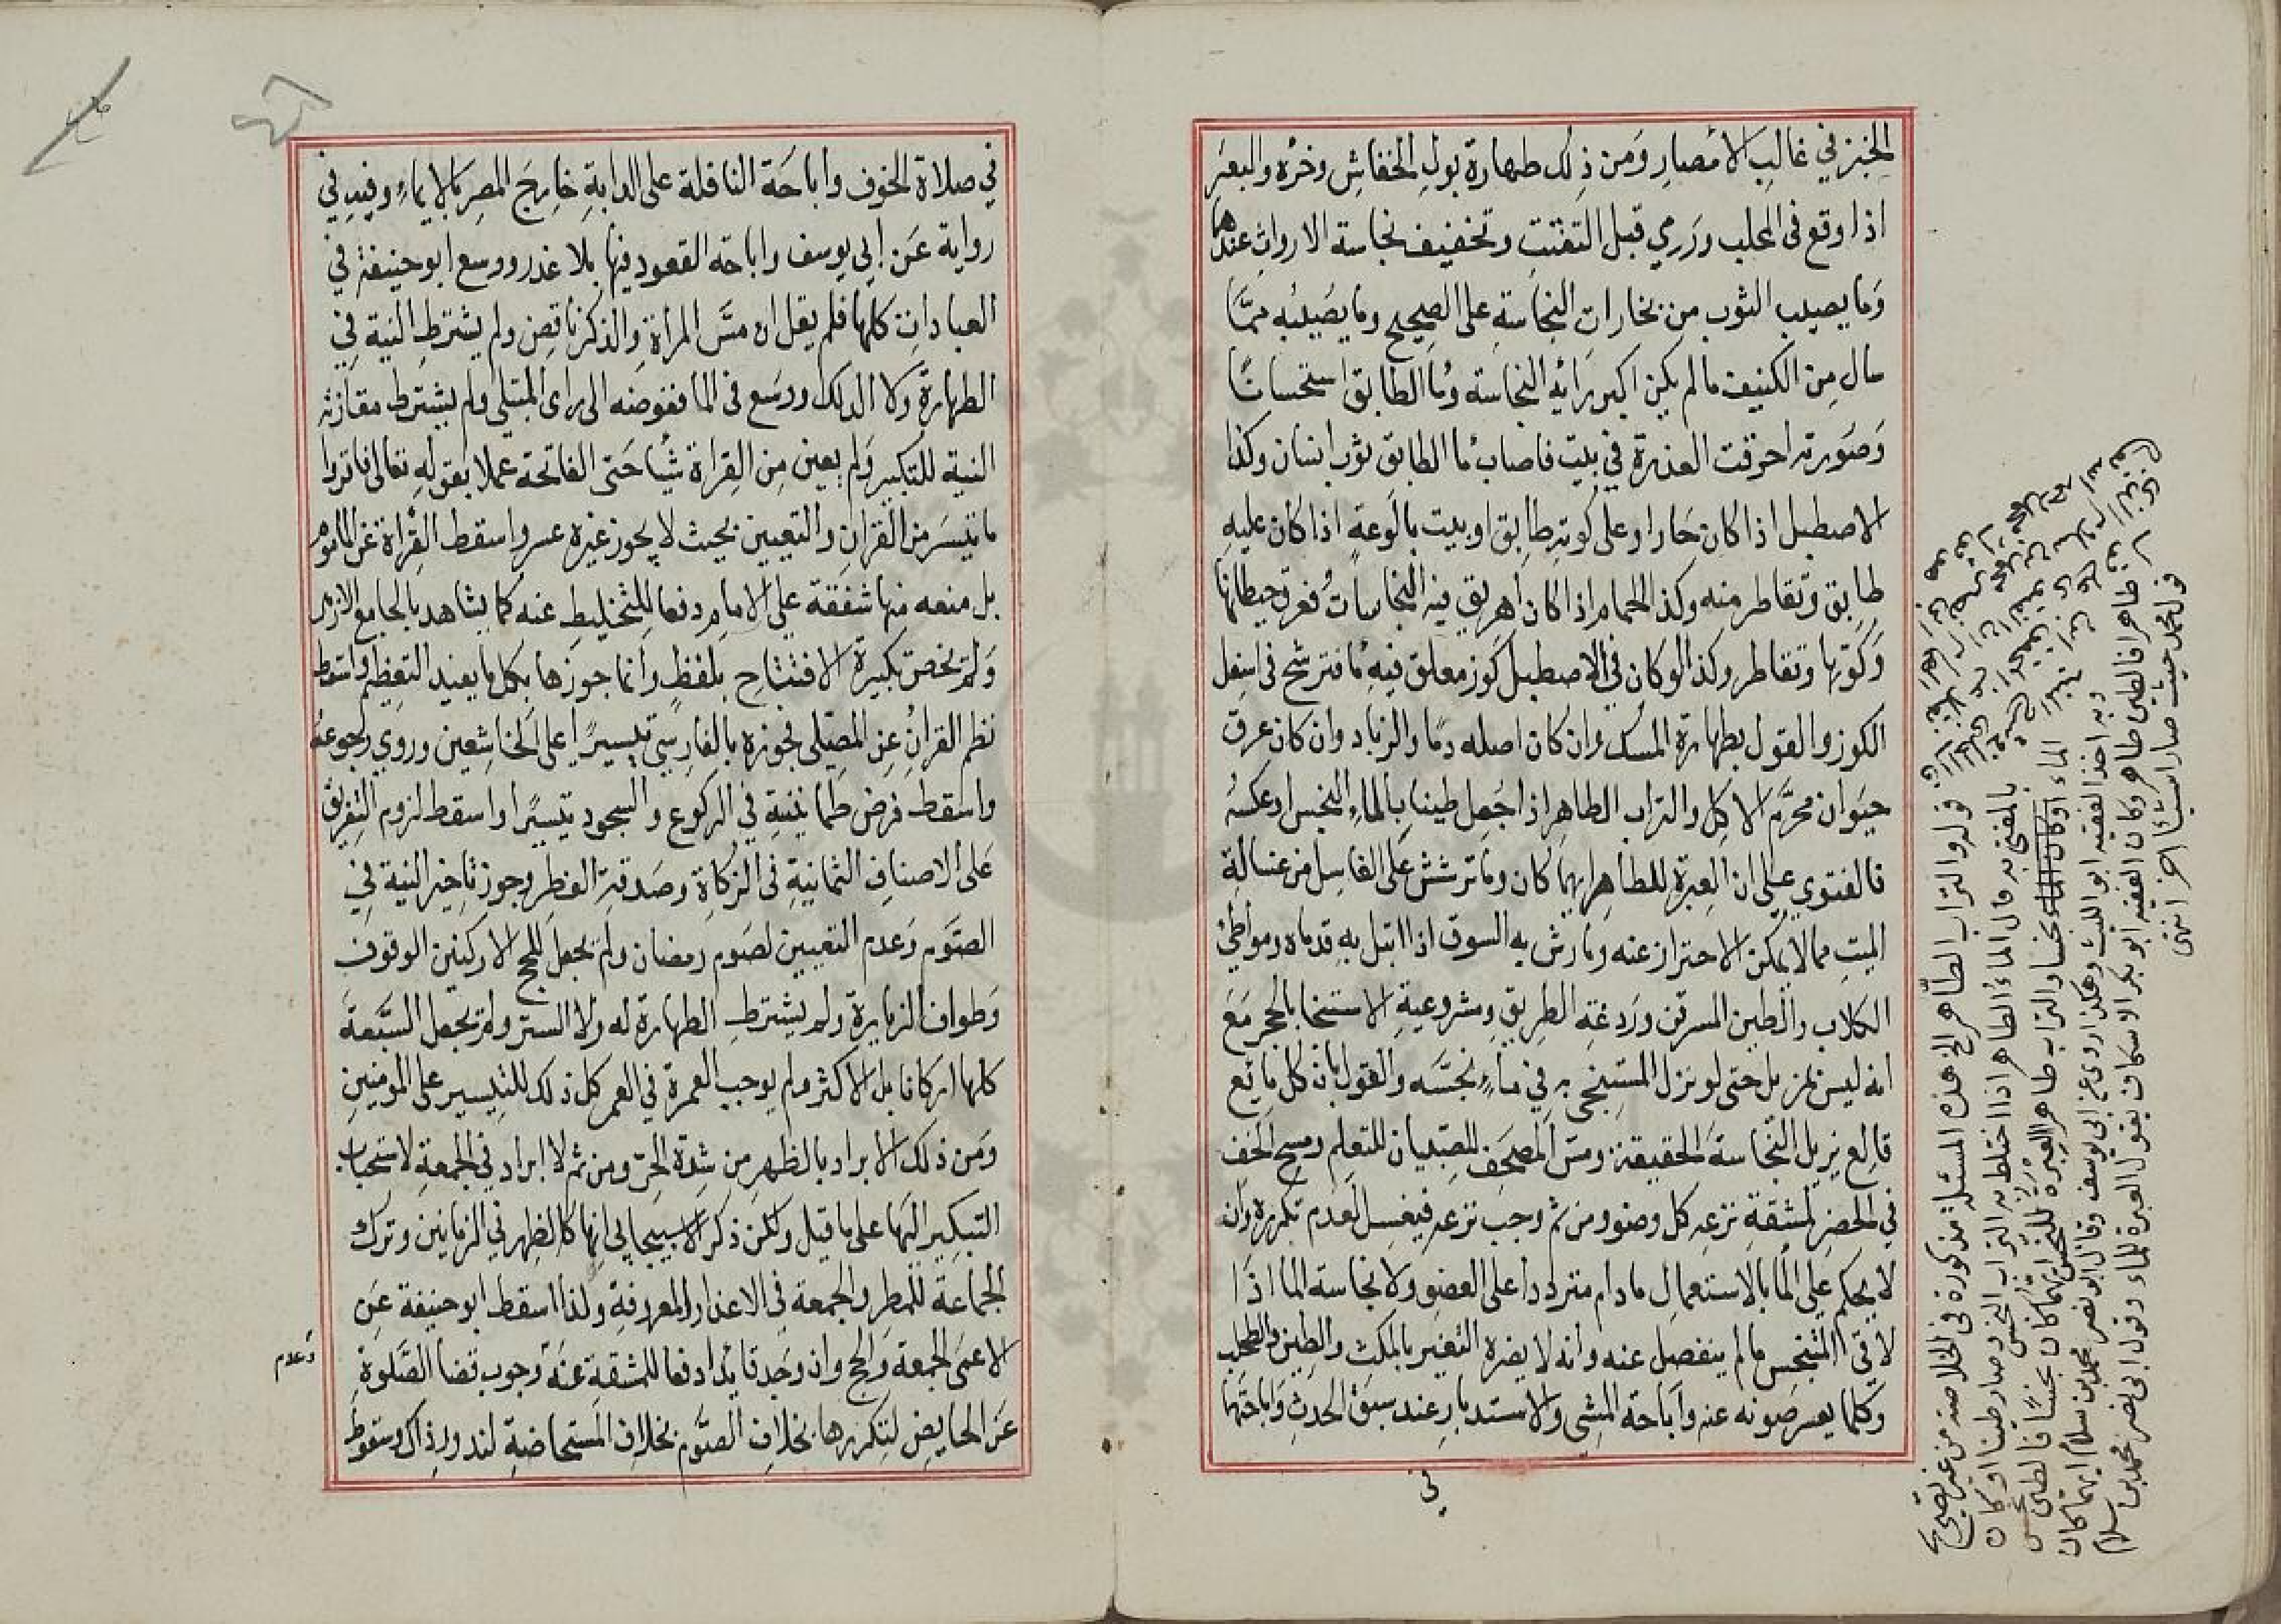 الخبز في غالب الأمصار ومن ذلك طهارة بول الخفاش وخرئه والبعر
اذا وقع في المحلب ورمي قبل التفتت وتخفيف نجاسة الارواث عندهما
وما يصيب الثوب من بخارات النجاسة على الصحيح وما يصيبه مما
سال من الكنيف ما لم يكن اكبر رائيه النجاسة وماء الطابق استحسانًا
وصورته احرقت العذرة في بيت فاصاب ماء الطابق ثوب انسان وكذا
الاصطبل اذا كان حارا وعلى كوته طابق او بيت بالوعة اذا كان عليه
طابق وتقاطر منه وكذا الحمام اذا كان اهريق فيه النجاسات فعرق حيطانها
وكوتها وتقاطر وكذا لو كان في الاصطبل كوز معلق فيه ماء فترشح في اسفل
الكوز والقول بطهارة المسك وان كان اصله دمًا والزباد وان كان عرق
حيوان محرّم الاكل والتراب الطاهر اذا جعل طينا بالماء النجس او عكسه
فالفتوى على ان العبرة للطاهر ايهما كان وما ترشش على الغاسل من غسالة
الميت مما لا يمكن الاحتراز عنه وما رش به السوق اذا ابتل به قدماه ومواطئ
الكلاب والطين المسرقن وردغة الطريق ومشروعية الاستنجا بالحجر مع
انه ليس بمزيل حتى لو نزل المستنجى به في ماء نجّسه والقول بان كل مائع
قالع يزيل النجاسة الحقيقة ومس المصحف للصبيان للتعلم ومسح الخف
في الحضر لمشقة نزعه كل وضوء ومن ثم وجب نزعه فيغسل لعدم تكرره وان
لا يحكم على الما بالاستعمال ما دام مترددا على العضو ولا نجاسة الما اذا
لاقى المتنجس ما لم ينفصل عنه وانه لا يضره التغير بالمكث والطين والطحلب
وكلما يعسر صونه عنه واباحة المشى والاستدبار عند سبق الحدث واباحتهما
في
قوله والتراب الطاهر الخ هذه المسئلة مذكورة في الخلاصة من غير تصريح
بالمفتى به قال الماء الطاهر اذا اختلط به التراب النجس وصار طينا او كان
الماء نجسا والتراب طاهر العبرة للنجس ايهما كان نجسًا فالطين نجس
وبه اخذ الفقيه ابو الليث وهكذا روى عن ابي يوسف وقال ابو نصر محمد بن سلام ايهما كان
طاهرا فالطين طاهر وكان الفقيه ابو بكر الاسكاف يقول العبرة للماء وقول ابي نصر محمد بن سلام
قول محمد حيث صار شيئا اخر انتهى
في صلاة الخوف واباحة النافلة على الدابة خارج المصر بالايماء وفيه في
رواية عن ابي يوسف واباحة القعود فيها بلا عذر ووسع ابو حنيفة في
العبادات كلها فلم يقل ان مسّ المرأة والذكر ناقض ولم يشترط النية في
الطهارة ولا الدلك ووسع في الما ففوضه الى راى المبتلى ولم يشترط مقارنة
النية للتكبير ولم يعين من القراة شيئا حتى الفاتحة عملا بقوله تعالى فاقروا
ما تيسر من القران والتعيين بحيث لا يجوز غيره عسر واسقط القراة عن الماموم
بل منعه منها شفقة على الامام دفعا للتخليط عنه كما يشاهد بالجامع الازهر
ولم يخص تكبيرة الافتتاح بلفظ وانما جوزها بكل ما يفيد التعظيم واسقط
نظم القران عن المصلى فجوزه بالفارسي تيسيرًا على الخاشعين وروي رجوعه
واسقط فرض طمانينة في الركوع والسجود تيسيرًا واسقط لزوم التفريق
على الاصناف الثمانية في الزكاة وصدقة الفطر وجوز تاخير النية في
الصوم وعدم التعيين لصوم رمضان ولم يجعل للحج الا ركنين الوقوف
وطواف الزيارة ولم يشترط الطهارة له ولا الستر ولم يجعل السبعة
كلها اركانا بل الاكثر ولم يوجب العمرة في العمر كل ذلك للتيسير على المومنين
ومن ذلك الابراد بالظهر من شدة الحرّ ومن ثم لا ابراد في الجمعة لاستحباب
التبكير اليها على ما قيل ولكن ذكر الاسبيجابي انها كالظهر في الزمانين وترك
الجماعة للمطر والجمعة في الاعذار المعروفة ولذا اسقط ابو حنيفة عن
الاعمى الجمعة والحج وان وجد قائدا دفعا للمشقة عنه وجوب قضا الصلوة
وعدم
عن الحايض لتكررها بخلاف الصوم بخلاف المستحاضة لندور ذاك وسقوط